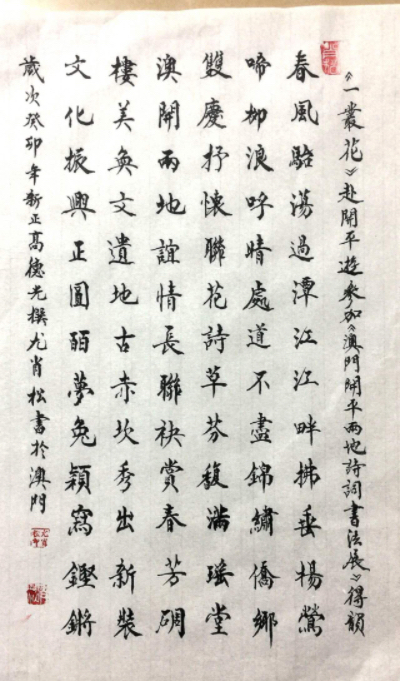 《一叢花》赴開平遊參加《澳門開平兩地詩詞書法展》得韻
春風駘蕩過潭江江畔拂垂楊鶯
啼柳浪呼晴處道不盡錦繡僑鄉
雙慶抒懷聯花詩草芬馥滿瑤堂
澳開兩地誼情長聯袂賞春芳碉
樓美奐文遺地古赤坎秀出新裝
文化振興正圓夢兔穎寫鏗鏘
歲次癸卯年新正高德光撰尤肖松書於澳門